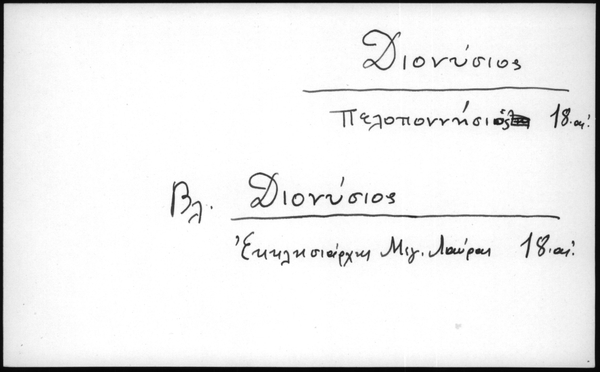 Διονύσιος
Πελοποννήσιος 18.αἰ.
Βλ. Διονύσιος
Ἐκκλησιάρχης Μεγ. Λαύρας 18.αἰ.